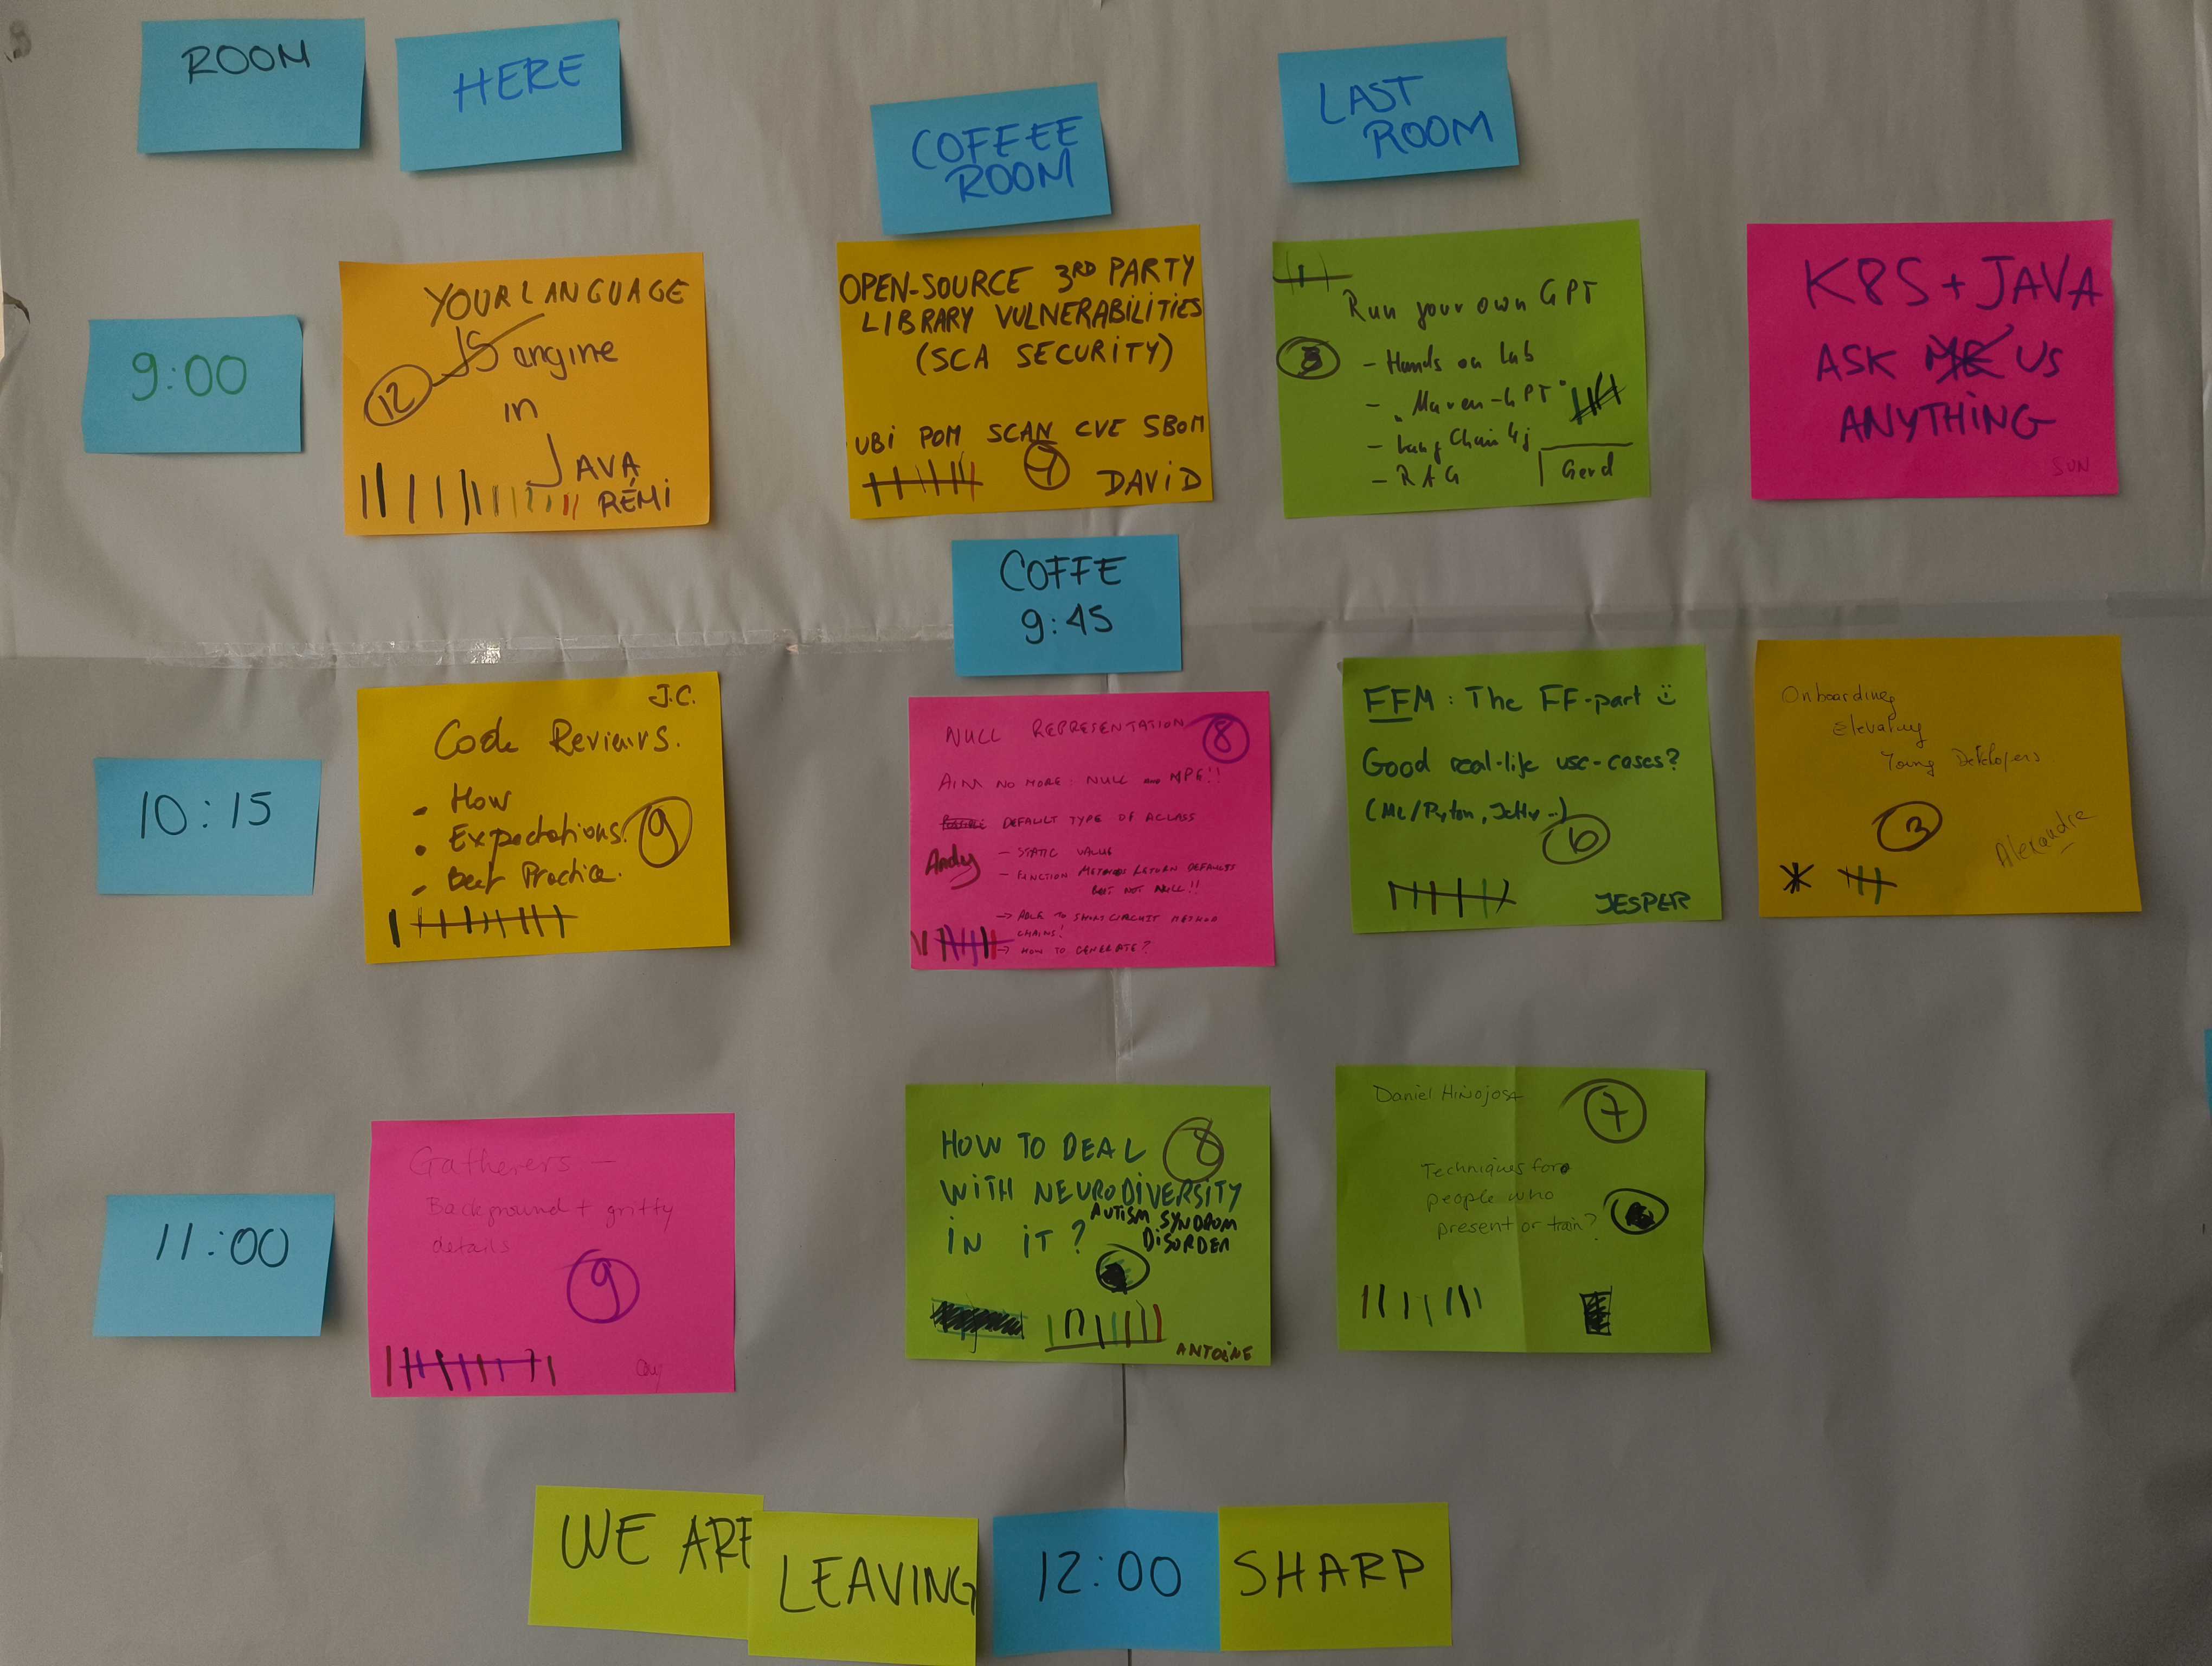 ROOM
HERE
COFFEE
ROOM
LAST
ROOM
9:00
YOUR LANGUAGE
JS engine
12
in
JAVA
RÉMI
OPEN-SOURCE 3RD PARTY
LIBRARY VULNERABILITIES
(SCA SECURITY)
UBI POM SCAN CVE SBOM
7
DAVID
Run your own GPT
- Hands on Lab
- Maven-GPT
- Lang Chain 4j
- RAG
Gerd
K8S + JAVA
ASK ME US
ANYTHING
SUN
COFFE
9:45
10:15
J.C.
Code Reviews.
• How
• Expectations.
9
• Best Practice.
NULL REPRESENTATION
8
AIM NO MORE: NULL NPE!!
DEFAULT TYPE OF A CLASS
Andy
- STATIC VALUE
- FUNCTION METHODS RETURN DEFAULTS
BUT NOT NULL!!
→ ABLE TO SHORT CIRCUIT METHOD
CHAINS!
→ HOW TO GENERATE?
FFM: The FF-part
Good real-life use-cases?
(ML/Pyton, Jetty ..)
6
JESPER
Onboarding
elevating
Young Developers
3
Alexandre
11:00
Gatherers —
Background + gritty
details
9
HOW TO DEAL
8
WITH NEURODIVERSITY
IN IT?
AUTISM SYNDROM
DISORDER
ANTOINE
Daniel Hinojosa
7
Techniques for
people who
present or train?
WE ARE
LEAVING
12:00
SHARP